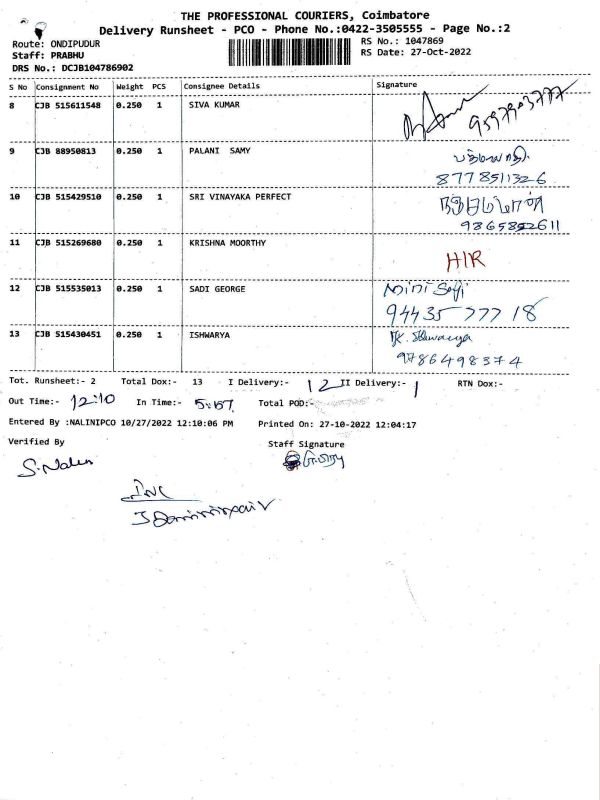 THE PROFESSIONAL COURIERS, Coimbatore
Delivery Runsheet - PCO - Phone No.:0422-3505555 - Page No.:2
Route: ONDIPUDUR
RS No.: 1047869
Staff: PRABHU
RS Date: 27-Oct-2022
DRS No.: DCJB104786902
S No Consignment No Weight PCS Consignee Details Signature
8 CJB 515611548 0.250 1 SIVA KUMAR
9597903777
9 CJB 88950813 0.250 1 PALANI SAMY
8778511326
10 CJB 515429510 0.250 1 SRI VINAYAKA PERFECT
9865852611
11 CJB 515269680 0.250 1 KRISHNA MOORTHY
H/R
12 CJB 515535013 0.250 1 SADI GEORGE
94435 777 18
13 CJB 515430451 0.250 1 ISHWARYA
9786498374
Tot. Runsheet:- 2 Total Dox:- 13 I Delivery:- 12 II Delivery:- 1 RTN Dox:-
Out Time:- 12:10 In Time:- 5:57 Total POD:-
Entered By :NALINIPCO 10/27/2022 12:10:06 PM Printed On: 27-10-2022 12:04:17
Verified By Staff Signature
S. Nalini